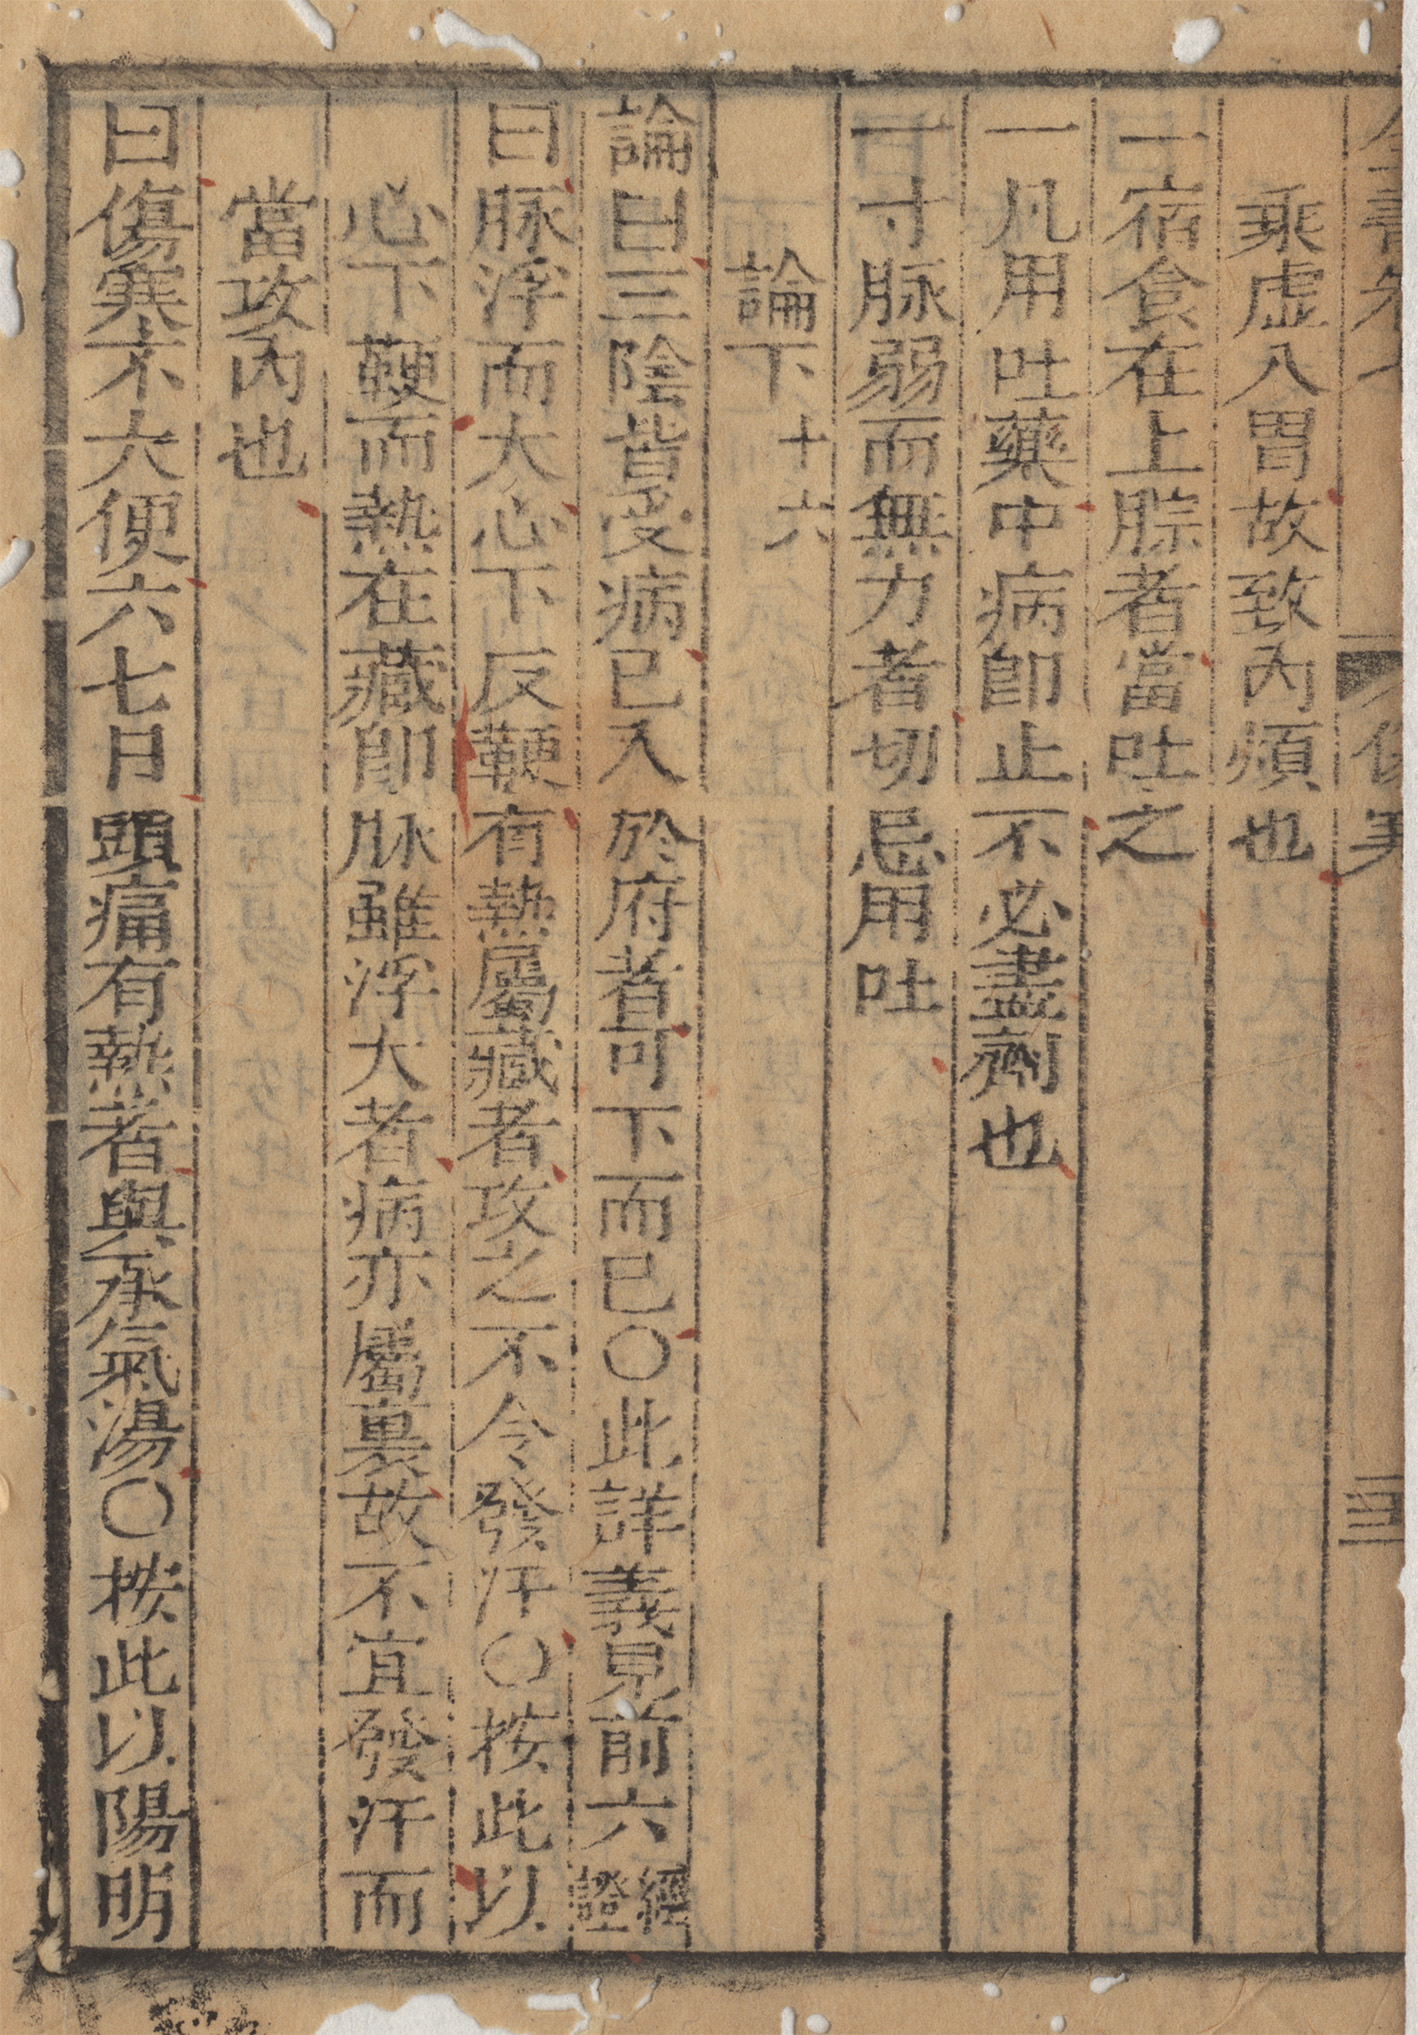 乘虛入胃故致內煩也
一宿食在上脘者當吐之
一凡用吐藥中病卽止不必盡劑也
一寸脉弱而無力者切忌用吐
論下十六
論曰三陰皆受病已入於府者可下而已〇此詳義見前六經證
曰脉浮而大心下反鞕有熱屬藏者攻之不令發汗〇按此以
心下鞕而熱在藏卽脉雖浮大者病亦屬裏故不宜發汗而
當攻內也
曰傷寒不大便六七日頭痛有熱者與承氣湯〇按此以陽明